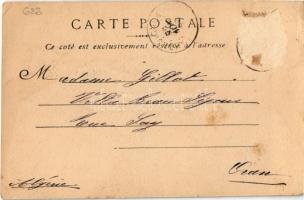 CARTE POSTALE
Ce côté est exclusivement réservé à l'adresse
Madame Gillot
Villa Beau Séjour
Rue Say
Oran
Algérie